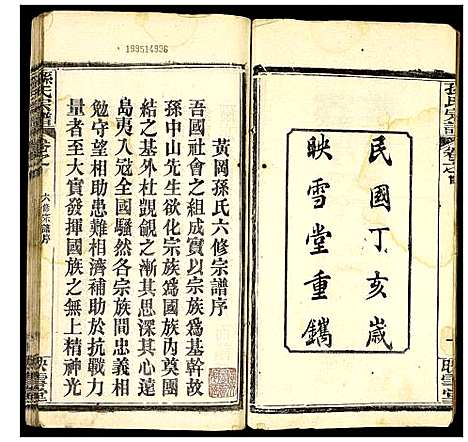 民國丁亥歲
映雪堂重鐫
孫氏宗譜
卷之首
映雪堂
199514936
黃岡孫氏六修宗譜序
吾國社會之組成實以宗族爲基幹故
孫中山先生欲化宗族爲國族內奠團
結之基外杜覬覦之漸其思深其心遠
島夷入寇全國騷然各宗族間忠義相
勉守望相助患難相濟補助於抗戰力
量者至大實發揮國族之無上精神
孫氏宗譜
卷之首
六修宗譜序
映雪堂